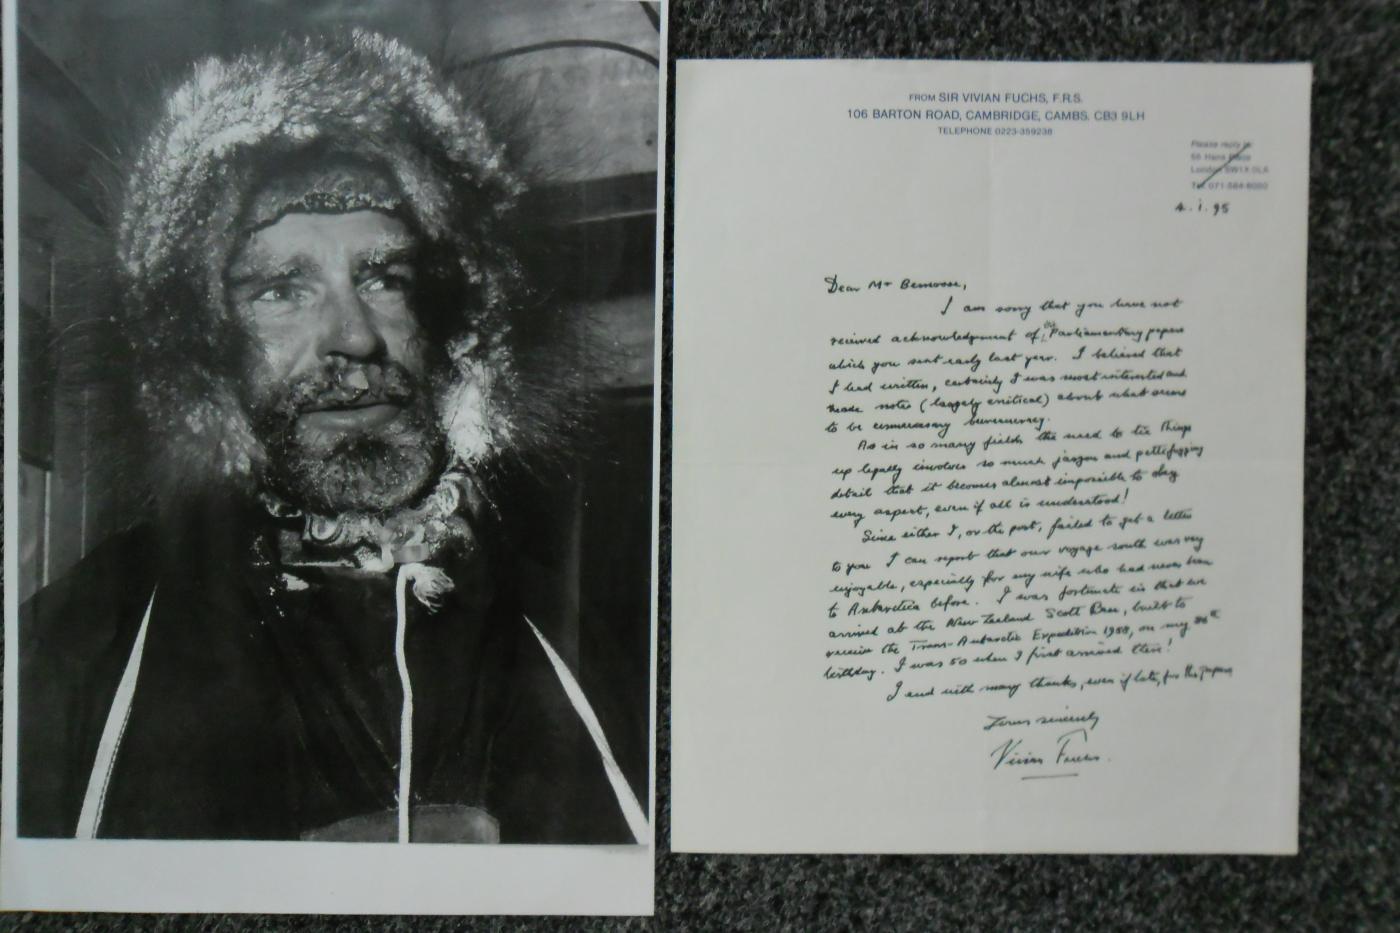 FROM SIR VIVIAN FUCHS, F.R.S.
106 BARTON ROAD, CAMBRIDGE, CAMBS. CB3 9LH
TELEPHONE 0223-359238
Please reply to:
London SW1X 0LA
Tel: 071-584-
4.1.95
Dear Mr
I am sorry that you have not
received acknowledgment of the Parliamentary papers
which you sent early last year. I believed that
I had written, certainly I was most interested and
made notes (largely critical) about what seems
to be unnecessary bureaucracy.
As in so many fields the need to tie things
up legally involves so much jargon and pettifogging
detail that it becomes almost impossible to obey
every aspect, even if all is understood!
Since either I, or the post, failed to get a letter
to you I can report that our voyage south was very
enjoyable, especially for my wife who had never been
to Antarctica before. I was fortunate in that we
arrived at the New Zealand Scott Base, built to
receive the Trans-Antarctic Expedition 1958, on my
birthday. I was 50 when I first arrived there!
I end with many thanks, even if late, for the papers
Yours sincerely
Vivian Fuchs.